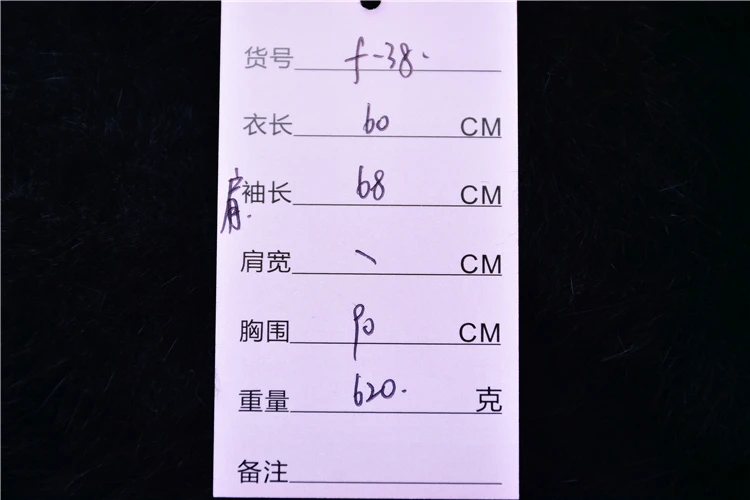 货号 f-38.
衣长 60 CM
肩袖长 68 CM
肩宽 \ CM
胸围 90 CM
重量 620. 克
备注